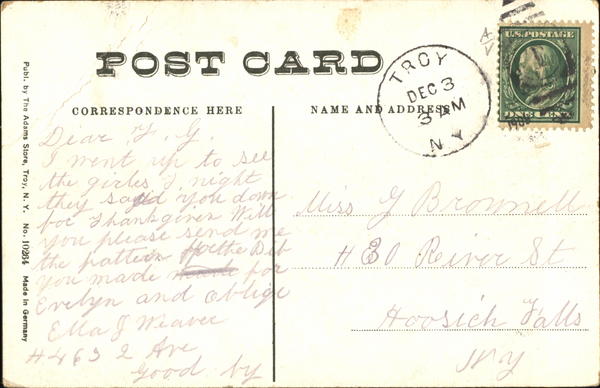 POST CARD
CORRESPONDENCE HERE
NAME AND ADDRESS
TROY
DEC 3
3 PM
N.Y.
U.S. POSTAGE
ONE CENT
Publ. by The Adams Store, Troy, N. Y. No. 102814 Made in Germany
Dear F. G.
I went up to see
the girles F. night
they said you down
for Thanksgiven Will
you please send me
the pattern for the Bib
you made for
Evelyn and oblige
Ella J Weaver
#463 2 Ave
Good by
Miss G Brownell
#30 River St
Hoosick Falls
N.Y